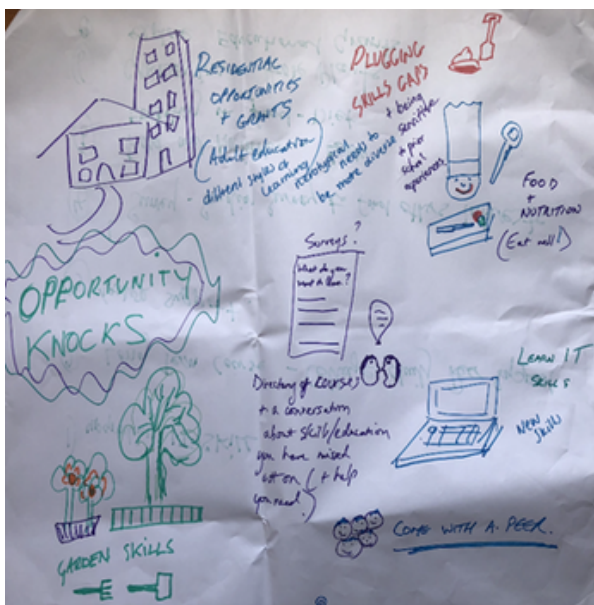 RESIDENTIAL
OPPORTUNITIES
+ GRANTS
(Adult education)
- different styles of
learning
stereotypical
needs to
be more diverse
PLUGGING
SKILLS GAPS
+ being
sensitive
+ prior
school
experiences
FOOD
+
NUTRITION
(Eat well!)
OPPORTUNITY
KNOCKS
Surveys?
What do you
want to learn?
Directory of courses
+ a conversation
about skills/education
you have missed
out on (+ help
you need)
LEARN IT
SKILLS
NEW
SKILLS
COME WITH A PEER.
GARDEN SKILLS